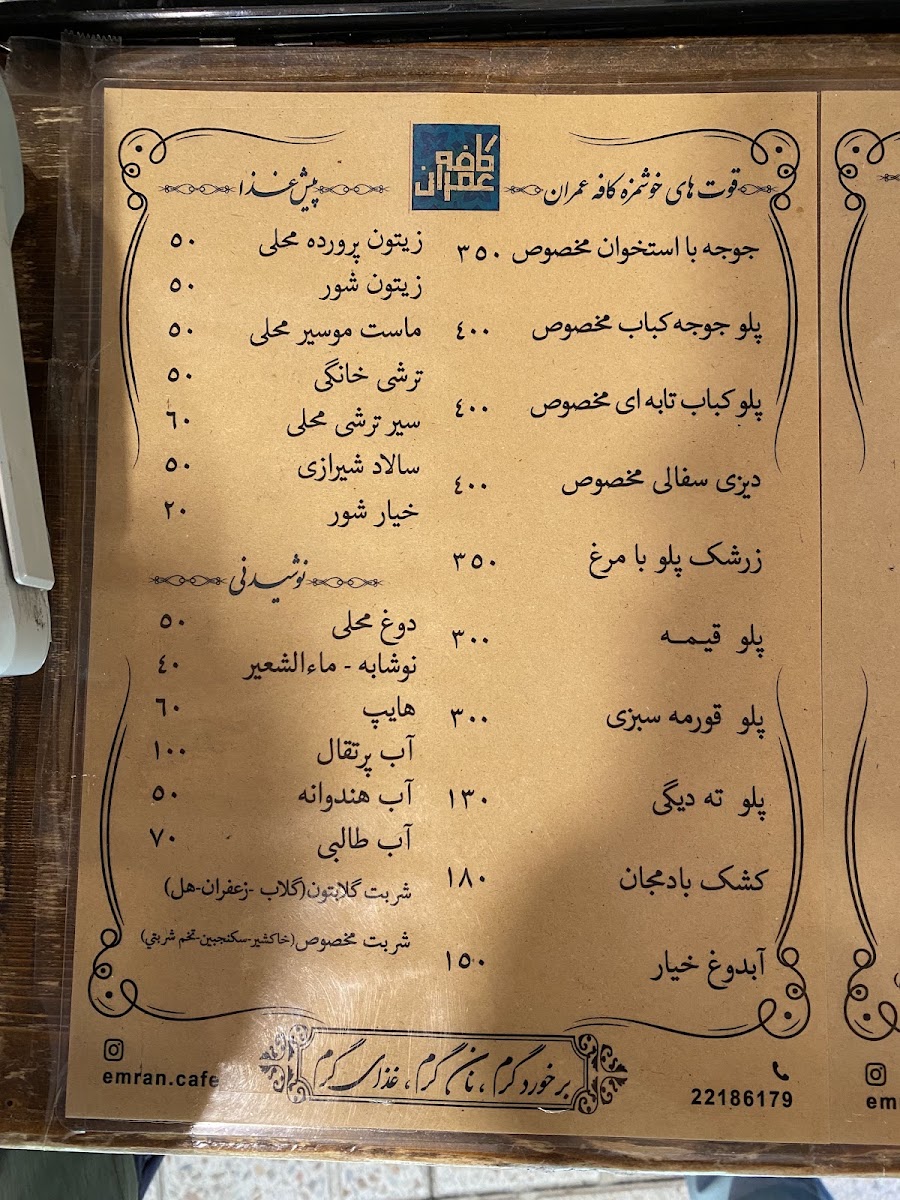 کافه عمران
قوت های خوشمزه کافه عمران
جوجه با استخوان مخصوص ۳۵۰
پلو جوجه کباب مخصوص ۴۰۰
پلو کباب تابه ای مخصوص ۴۰۰
دیزی سفالی مخصوص ۴۰۰
زرشک پلو با مرغ ۳۵۰
پلو قیمه ۳۰۰
پلو قورمه سبزی ۳۰۰
پلو ته دیگی ۱۳۰
کشک بادمجان ۱۸۰
آبدوغ خیار ۱۵۰
پیش غذا
زیتون پرورده محلی ۵۰
زیتون شور ۵۰
ماست موسیر محلی ۵۰
ترشی خانگی ۵۰
سیر ترشی محلی ۶۰
سالاد شیرازی ۵۰
خیار شور ۲۰
نوشیدنی
دوغ محلی ۵۰
نوشابه - ماءالشعیر ۴۰
هایپ ۶۰
آب پرتقال ۱۰۰
آب هندوانه ۵۰
آب طالبی ۷۰
شربت گلابتون(گلاب -زعفران-هل)
شربت مخصوص(خاکشیر-سکنجبین-تخم شربتي)
برخورد گرم ، نان گرم ، غذای گرم
emran.cafe
22186179
em